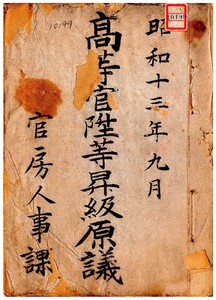 昭和十三年九月
高等官陞等昇級原議
官房人事課
10199